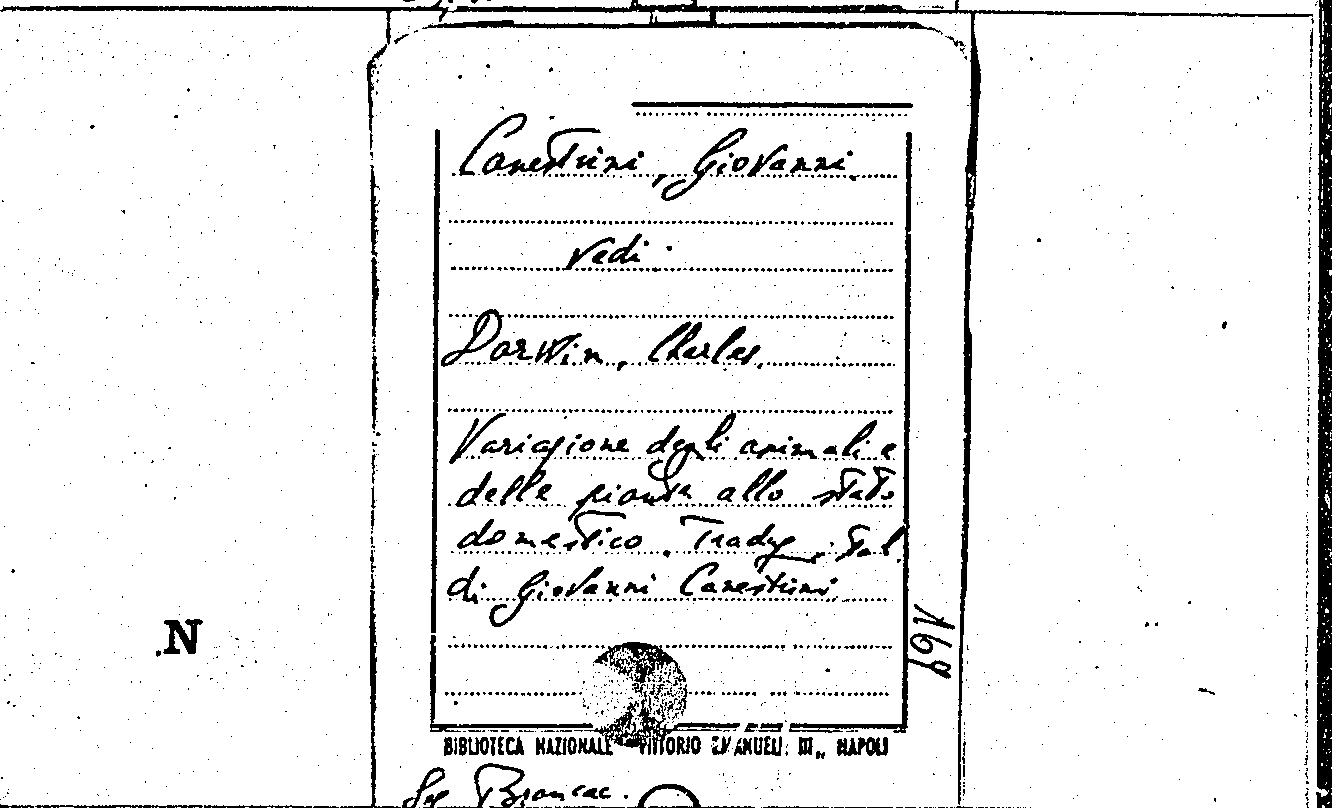 Canestrini, Giovanni.
vedi
Darwin, Charles.
Variazione degli animali e
delle piante allo stato
domestico. Traduz. ital.
di Giovanni Canestrini
169
N
BIBLIOTECA NAZIONALE VITTORIO EMANUELE III„ NAPOLI
Brancac.